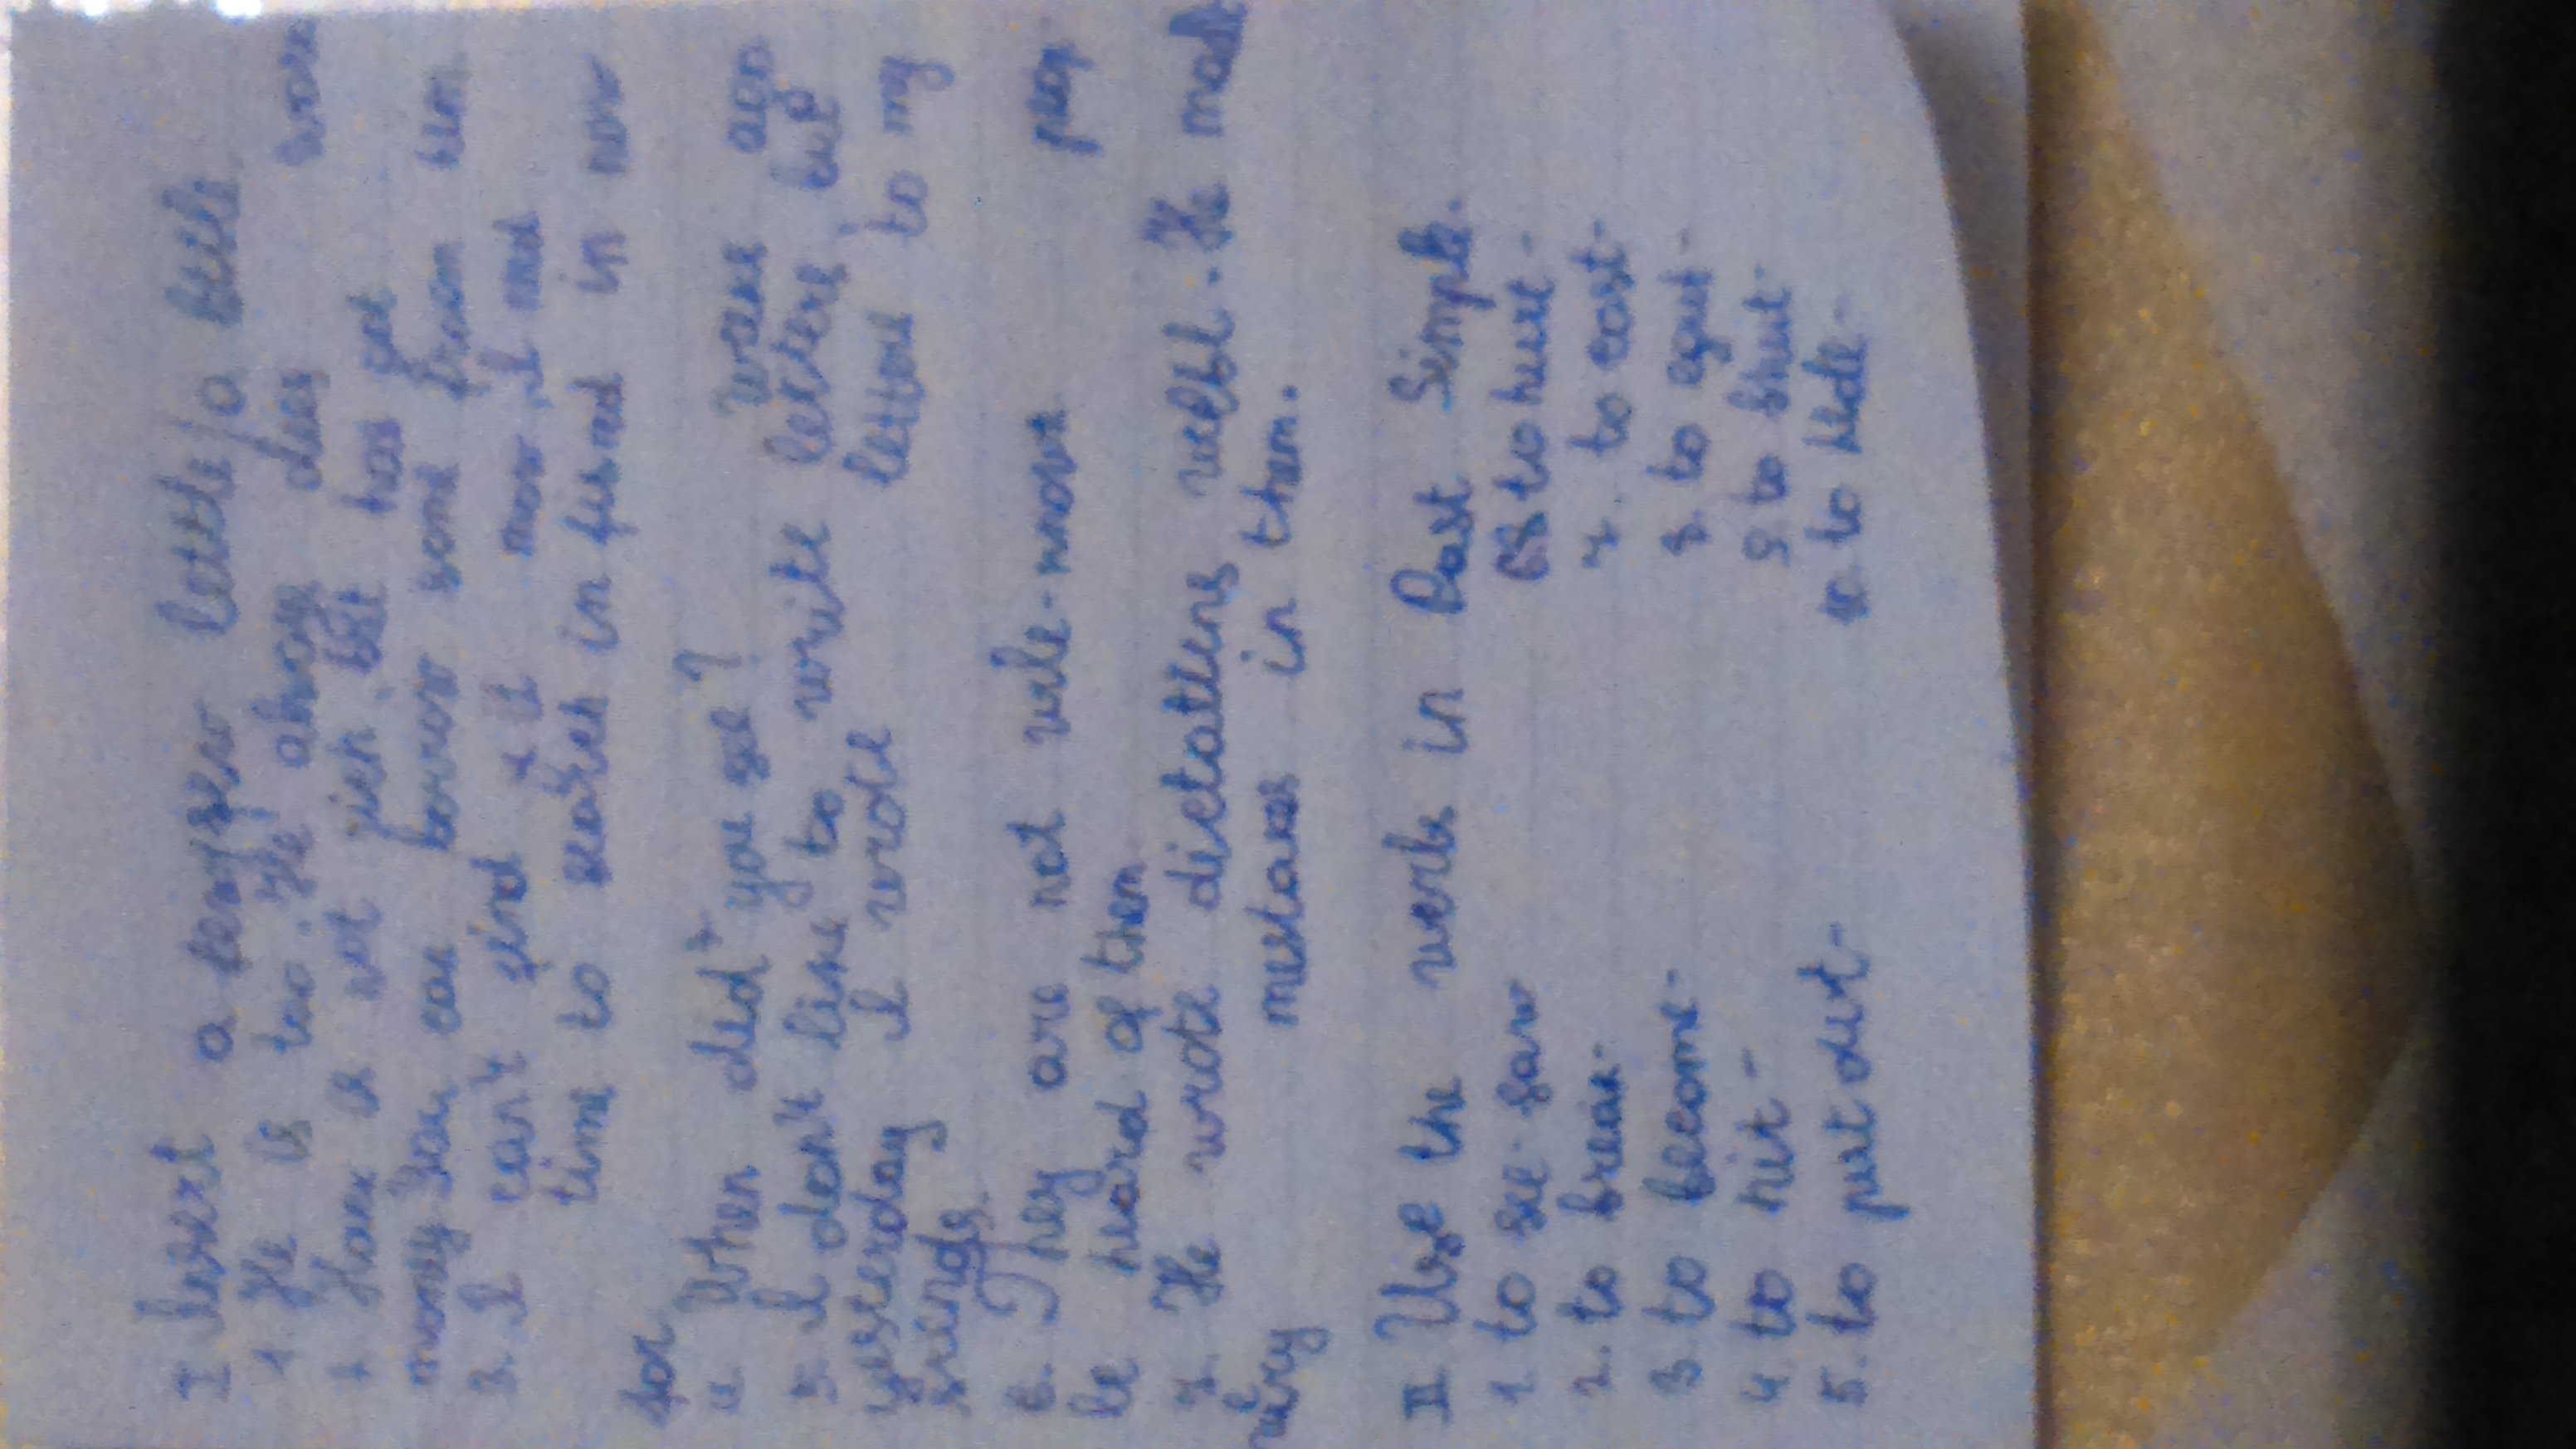 I Insert a few/few little/a little
1. He is too. He always does work
2. Hanx is not rich, but has got
money. You can borrow some from him
3. I can't find it now, I
time to search in
for
4. When did you ? Was ago
5. I don't like to write letters but
yesterday I wrote letters to my
friends.
6. They are not well-known. peop
le heard of them
7. He wrote dictations well. He mad
very mistakes in them.
II Use the verbs in Past Simple.
1. to see - saw 6. to hurt -
2. to break - 7. to cost -
3. to become - 8. to -
4. to hit - 9. to shut -
5. to put out - 10. to hide -